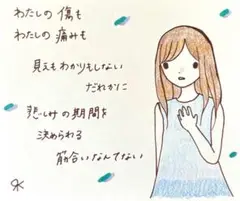 わたしの 傷も
わたしの 痛みも
見えも わかりもしない
だれかに
悲しみの期間を
決められる
筋合いなんてない